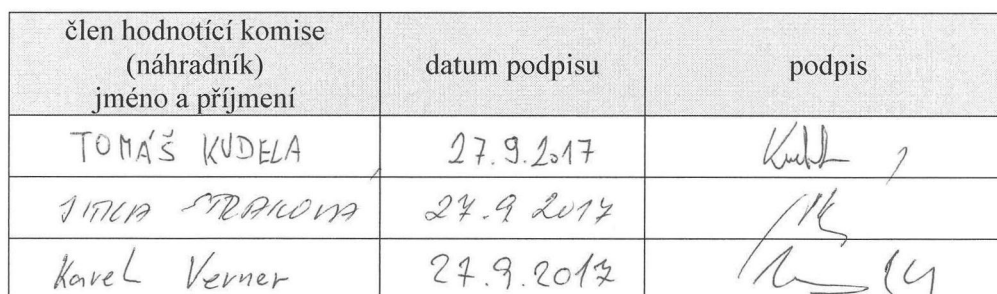 člen hodnotící komise
(náhradník)
jméno a příjmení
datum podpisu
podpis
TOMÁŠ KUDELA 27.9.2017
JITKA STRAKOVA 27.9 2017
Karel Verner 27.9.2017